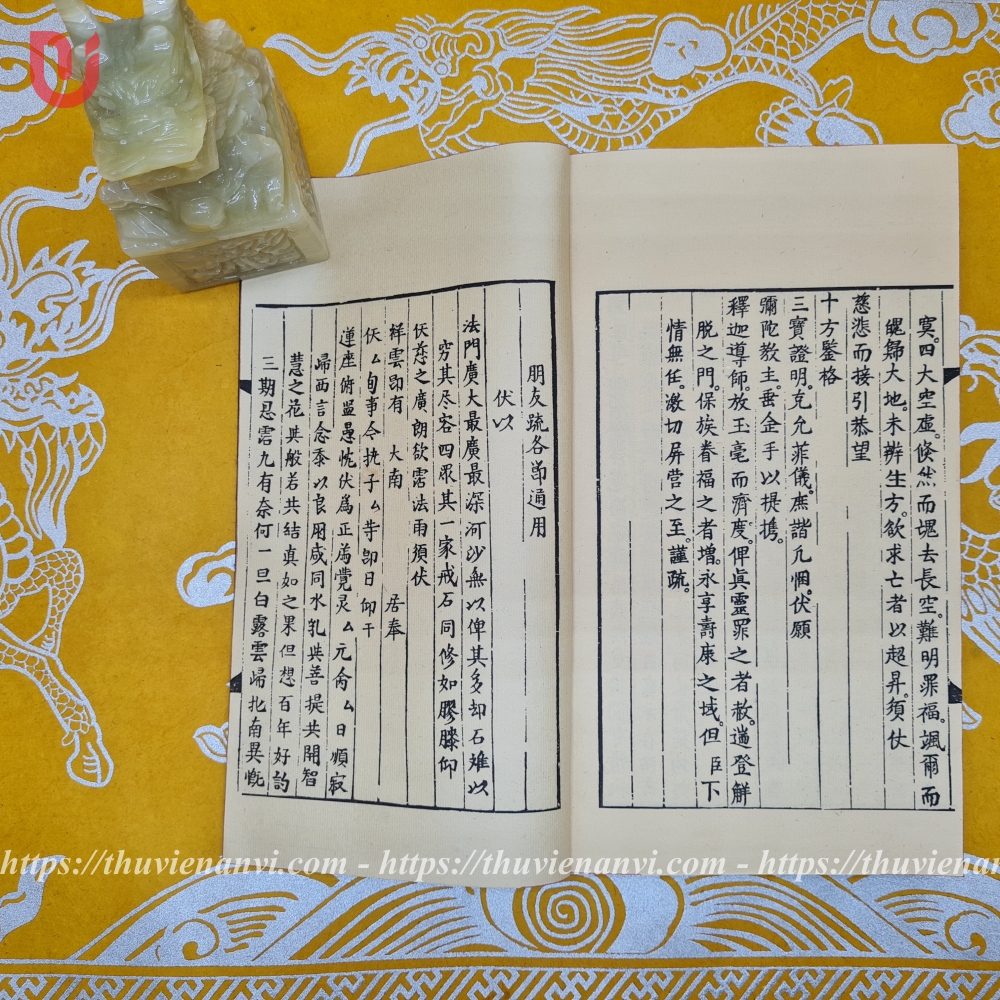 寞。四大空虛。倏然而塊去長空。難明罪福。颯爾而
魄歸大地。未辨生方。欲求亡者以超昇。須仗
慈悲而接引恭望
十方鑒格
三寶證明。克允菲儀。庶諧凢悃。伏願
彌陀教主。垂金手以提携。
釋迦導師。放玉毫而濟度。俾眞靈罪之者赦。遄登觧
脱之門。保族眷福之者增。永享壽康之域。但臣下
情無任。激切屏营之至。謹疏。
朋友疏各莭通用
伏以
法門廣大最廣最深河沙無以俾其多却石难以
穷其尽容四眾其一家戒石同修如膠膝仰
仸慈之廣朗欲霑法雨須伏
祥雲卽有 大南 居奉
仸厶旬事今执子厶等卽日仰干
蓮座俯鍳愚忱伏爲正荐覺灵厶元命厶日順寂
㱕西言念忝以良朋咸同水乳共菩提共開智
慧之花共般若共结真如之果但想百年好韵
三期忍霑九有奈何一旦白露雲㱕北南異慨
https://thuvienanvi.com - https://thuvienanvi.com - https://thuviena